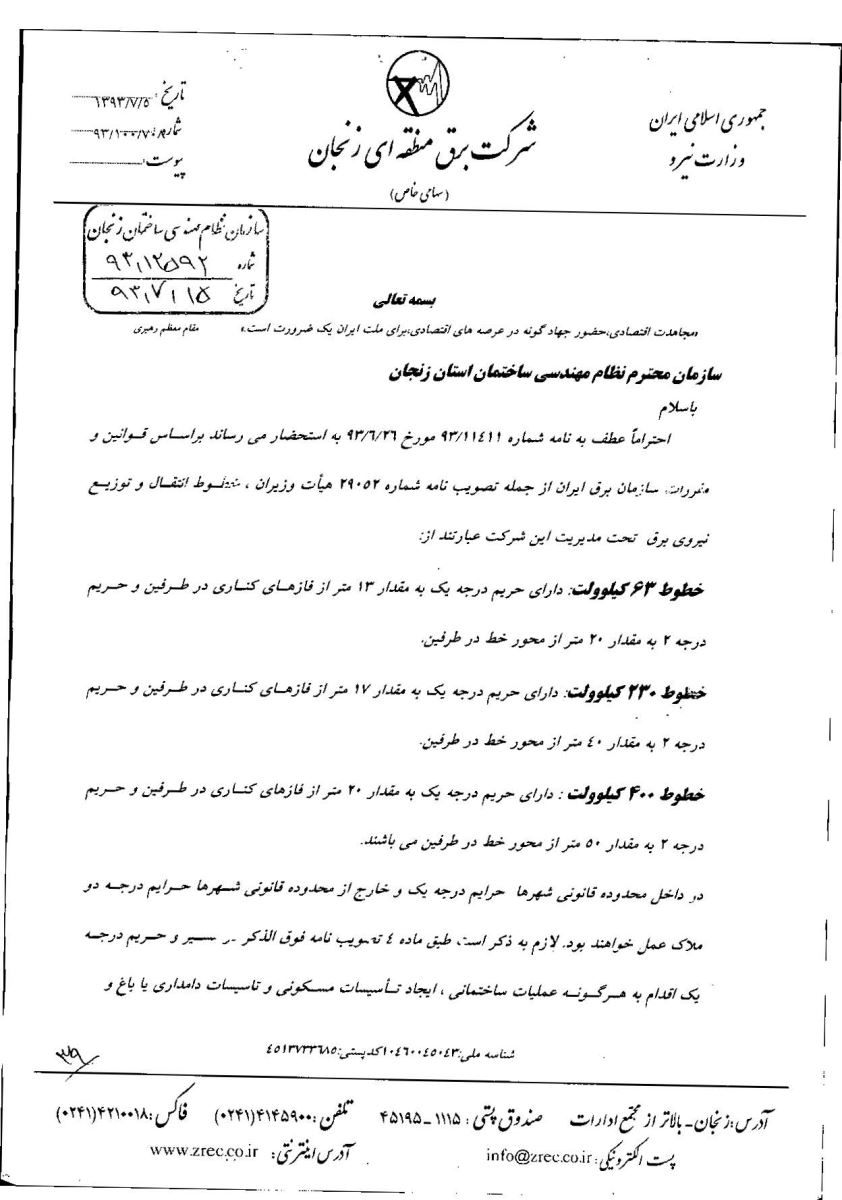 جمهوری اسلامی ایران
وزارت نیرو
شرکت برق منطقه ای زنجان
(سهامی خاص)
تاریخ: ۱۳۹۳/۷/۵
شماره: ۹۳/۱۰۰/۷۰۸
پیوست:
سازمان نظام مهندسی ساختمان زنجان
شماره ۹۳،۱۲۵۹۲
تاریخ ۹۳،۷،۱۵
بسمه تعالی
«مجاهدت اقتصادی،حضور جهاد گونه در عرصه های اقتصادی،برای ملت ایران یک ضرورت است.» مقام معظم رهبری
سازمان محترم نظام مهندسی ساختمان استان زنجان
باسلام
احتراماً عطف به نامه شماره ۹۳/۱۱۴۱۱ مورخ ۹۳/۶/۲۶ به استحضار می رساند براساس قوانین و
مقررات سازمان برق ایران از جمله تصویب نامه شماره ۲۹۰۵۲ هیأت وزیران ، خطوط انتقال و توزیع
نیروی برق تحت مدیریت این شرکت عبارتند از:
خطوط ۶۳ کیلوولت: دارای حریم درجه یک به مقدار ۱۳ متر از فازهای کناری در طرفین و حریم
درجه ۲ به مقدار ۲۰ متر از محور خط در طرفین.
خطوط ۲۳۰ کیلوولت: دارای حریم درجه یک به مقدار ۱۷ متر از فازهای کناری در طرفین و حریم
درجه ۲ به مقدار ۴۰ متر از محور خط در طرفین.
خطوط ۴۰۰ کیلوولت : دارای حریم درجه یک به مقدار ۲۰ متر از فازهای کناری در طرفین و حریم
درجه ۲ به مقدار ۵۰ متر از محور خط در طرفین می باشند.
در داخل محدوده قانونی شهرها حرایم درجه یک و خارج از محدوده قانونی شهرها حرایم درجه دو
ملاک عمل خواهند بود. لازم به ذکر است طبق ماده ٤ تصویب نامه فوق الذکر در مسیر و حریم درجه
یک اقدام به هرگونه عملیات ساختمانی ، ایجاد تأسیسات مسکونی و تاسیسات دامداری یا باغ و
شناسه ملی:۱۰۴۶۰۰۴۵۰۴۳کدپستی:۴۵۱۳۷۳۳۶۸۵
۳۹
آدرس:زنجان- بالاتر از مجتمع ادارات صندوق پستی : ۱۱۱۵ - ۴۵۱۹۵ تلفن :۴۱۴۵۹۰۰(۰۲۴۱) فاکس :۴۲۱۰۰۱۸(۰۲۴۱)
پست الکترونیکی: info@zrec.co.ir آدرس اینترنتی: www.zrec.co.ir